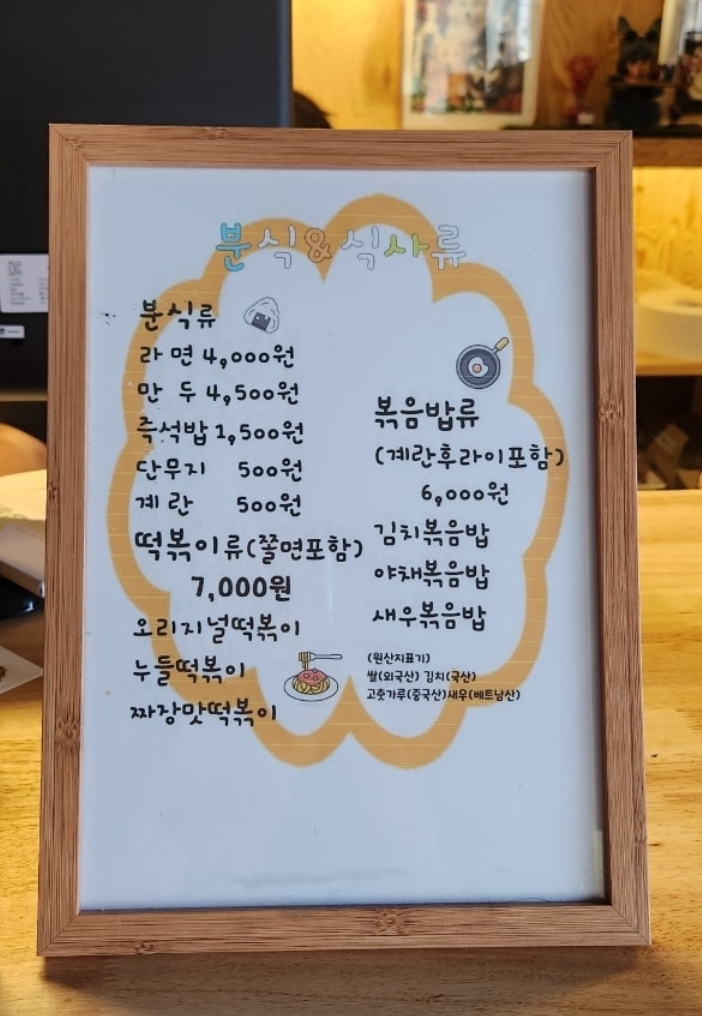 분식&식사류
분식류
라면 4,000원
만두 4,500원
즉석밥 1,500원
단무지 500원
계란 500원
떡볶이류(쫄면포함)
7,000원
오리지널떡볶이
누들떡볶이
짜장맛떡볶이
볶음밥류
(계란후라이포함)
6,000원
김치볶음밥
야채볶음밥
새우볶음밥
(원산지표기)
쌀(외국산) 김치(국산)
고춧가루(중국산)새우(베트남산)